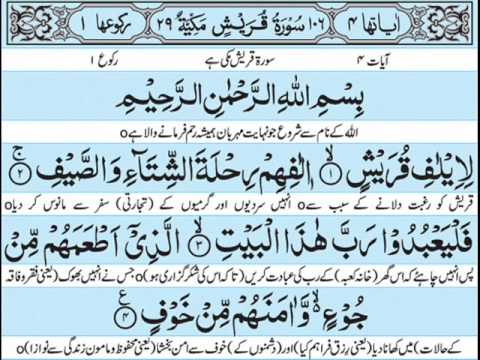 اٰیاتها ۴ ۱۰۶ سُوْرَةُ قُرَيْشٍ مَكِّيَّةٌ ۲۹ رکوعها ۱
آیات ۴ سورۃ قریش مکی ہے رکوع ۱
بِسْمِ اللهِ الرَّحْمٰنِ الرَّحِيْمِ
اللہ کے نام سے شروع جو نہایت مہربان ہمیشہ رحم فرمانے والا ہے o
لِاِيْلٰفِ قُرَيْشٍ ۙ﴿۱﴾ اٖلٰفِهِمْ رِحْلَةَ الشِّتَآءِ وَالصَّيْفِ ۚ﴿۲﴾
قریش کو رغبت دلانے کے سبب سے o انہیں سردیوں اور گرمیوں کے (تجارتی) سفر سے مانوس کر دیا o
فَلْيَعْبُدُوْا رَبَّ هٰذَا الْبَيْتِ ۙ﴿۳﴾ الَّذِيْٓ اَطْعَمَهُمْ مِّنْ
پس انہیں چاہئے کہ اس گھر (خانہ کعبہ) کے رب کی عبادت کریں (تاکہ اس کی شکر گزاری ہو) o جس نے انہیں بھوک (یعنی فقر و فاقہ
جُوْعٍ ۙ وَّاٰمَنَهُمْ مِّنْ خَوْفٍ ۧ﴿۴﴾
کے حالات) میں کھانا دیا (یعنی رزق فراہم کیا) اور (دشمنوں کے) خوف سے امن بخشا (یعنی محفوظ و مامون زندگی سے نوازا) o